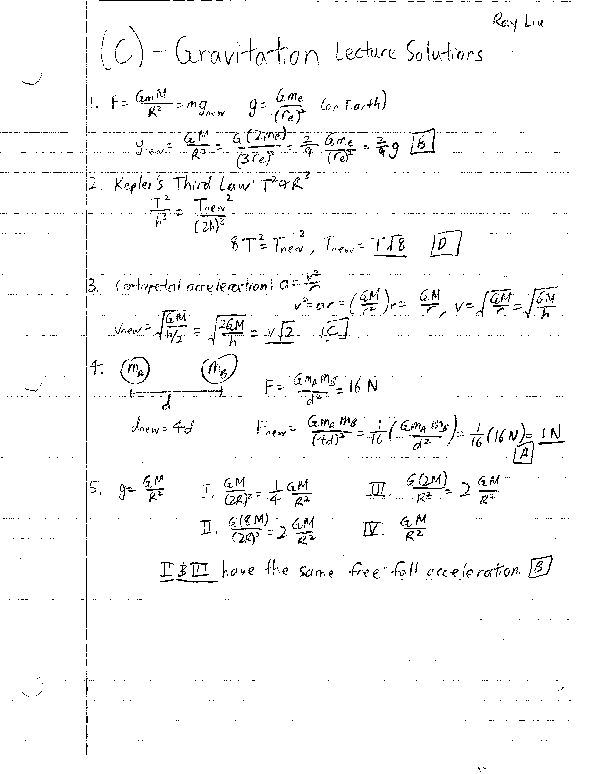 Ray Liu
(C) - Gravitation Lecture Solutions
1. F = GmM/R² = mg_new g = Gm_e/(r_e)² (on Earth)
g_new = GM/R² = G(2m_e)/(3r_e)² = 2/9 Gm_e/(r_e)² = 2/9 g [B]
2. Kepler's Third Law: T² ∝ R³
T²/h³ = T_new²/(2h)³
8T² = T_new², T_new = T√8 [D]
3. Centripetal acceleration: a = v²/r
v² = ar = (GM/r²)r = GM/r, v = √(GM/r) = √(GM/h)
v_new = √(GM/(h/2)) = √(2GM/h) = v√2 [C]
4. m_A m_B
d
F = Gm_A m_B/d² = 16 N
d_new = 4d F_new = Gm_A m_B/(4d)² = 1/16 (Gm_A m_B/d²) = 1/16 (16 N) = 1 N
[A]
5. g = GM/R² I. GM/(2R)² = 1/4 GM/R² III. G(2M)/R² = 2 GM/R²
II. G(8M)/(2R)² = 2 GM/R² IV. GM/R²
II & III have the same free-fall acceleration. [B]